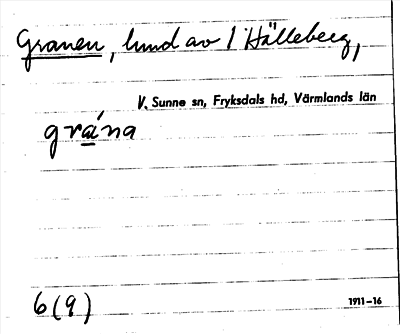 Granen, lund av 1 Hälleberg,
V. Sunne sn, Fryksdals hd, Värmlands län
grána
6(9)
1911-16